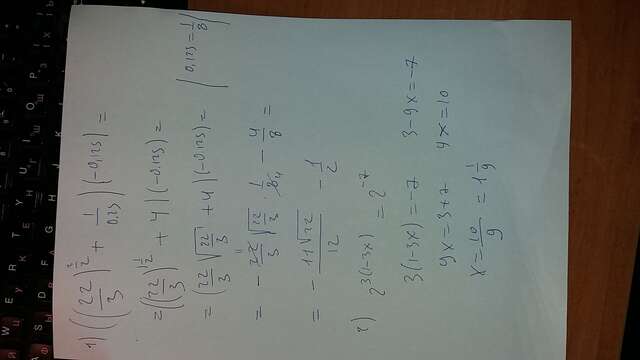 1) ((22/3)^(3/2) + 1/0,25)(-0,125) =
= ((22/3)^(3/2) + 4)(-0,125) =
= (22/3 √22/3 + 4)(-0,125) = | 0,125 = 1/8 |
= - 22/3 √22/3 · 1/8 - 4/8 =
= - 11√22/12 - 1/2
2) 2^(3(1-3x)) = 2^(-7)
3(1-3x) = -7 3-9x = -7
9x = 3+7 9x = 10
x = 10/9 = 1 1/9